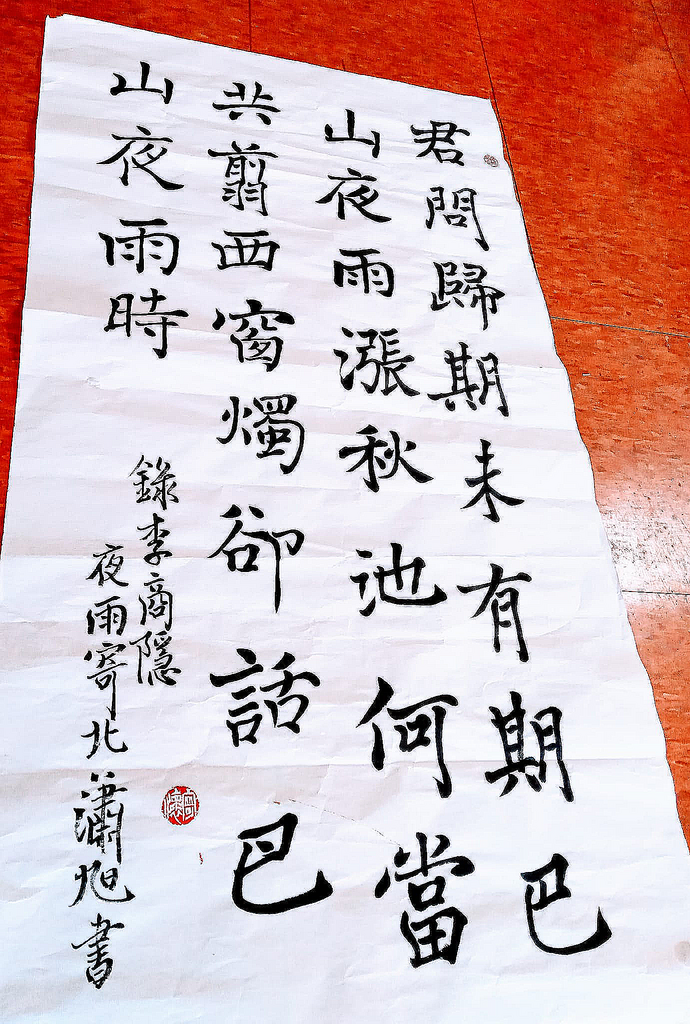 君問歸期未有期巴
山夜雨漲秋池何當
共翦西窗燭卻話巴
山夜雨時
錄李商隱
夜雨寄北瀟旭書